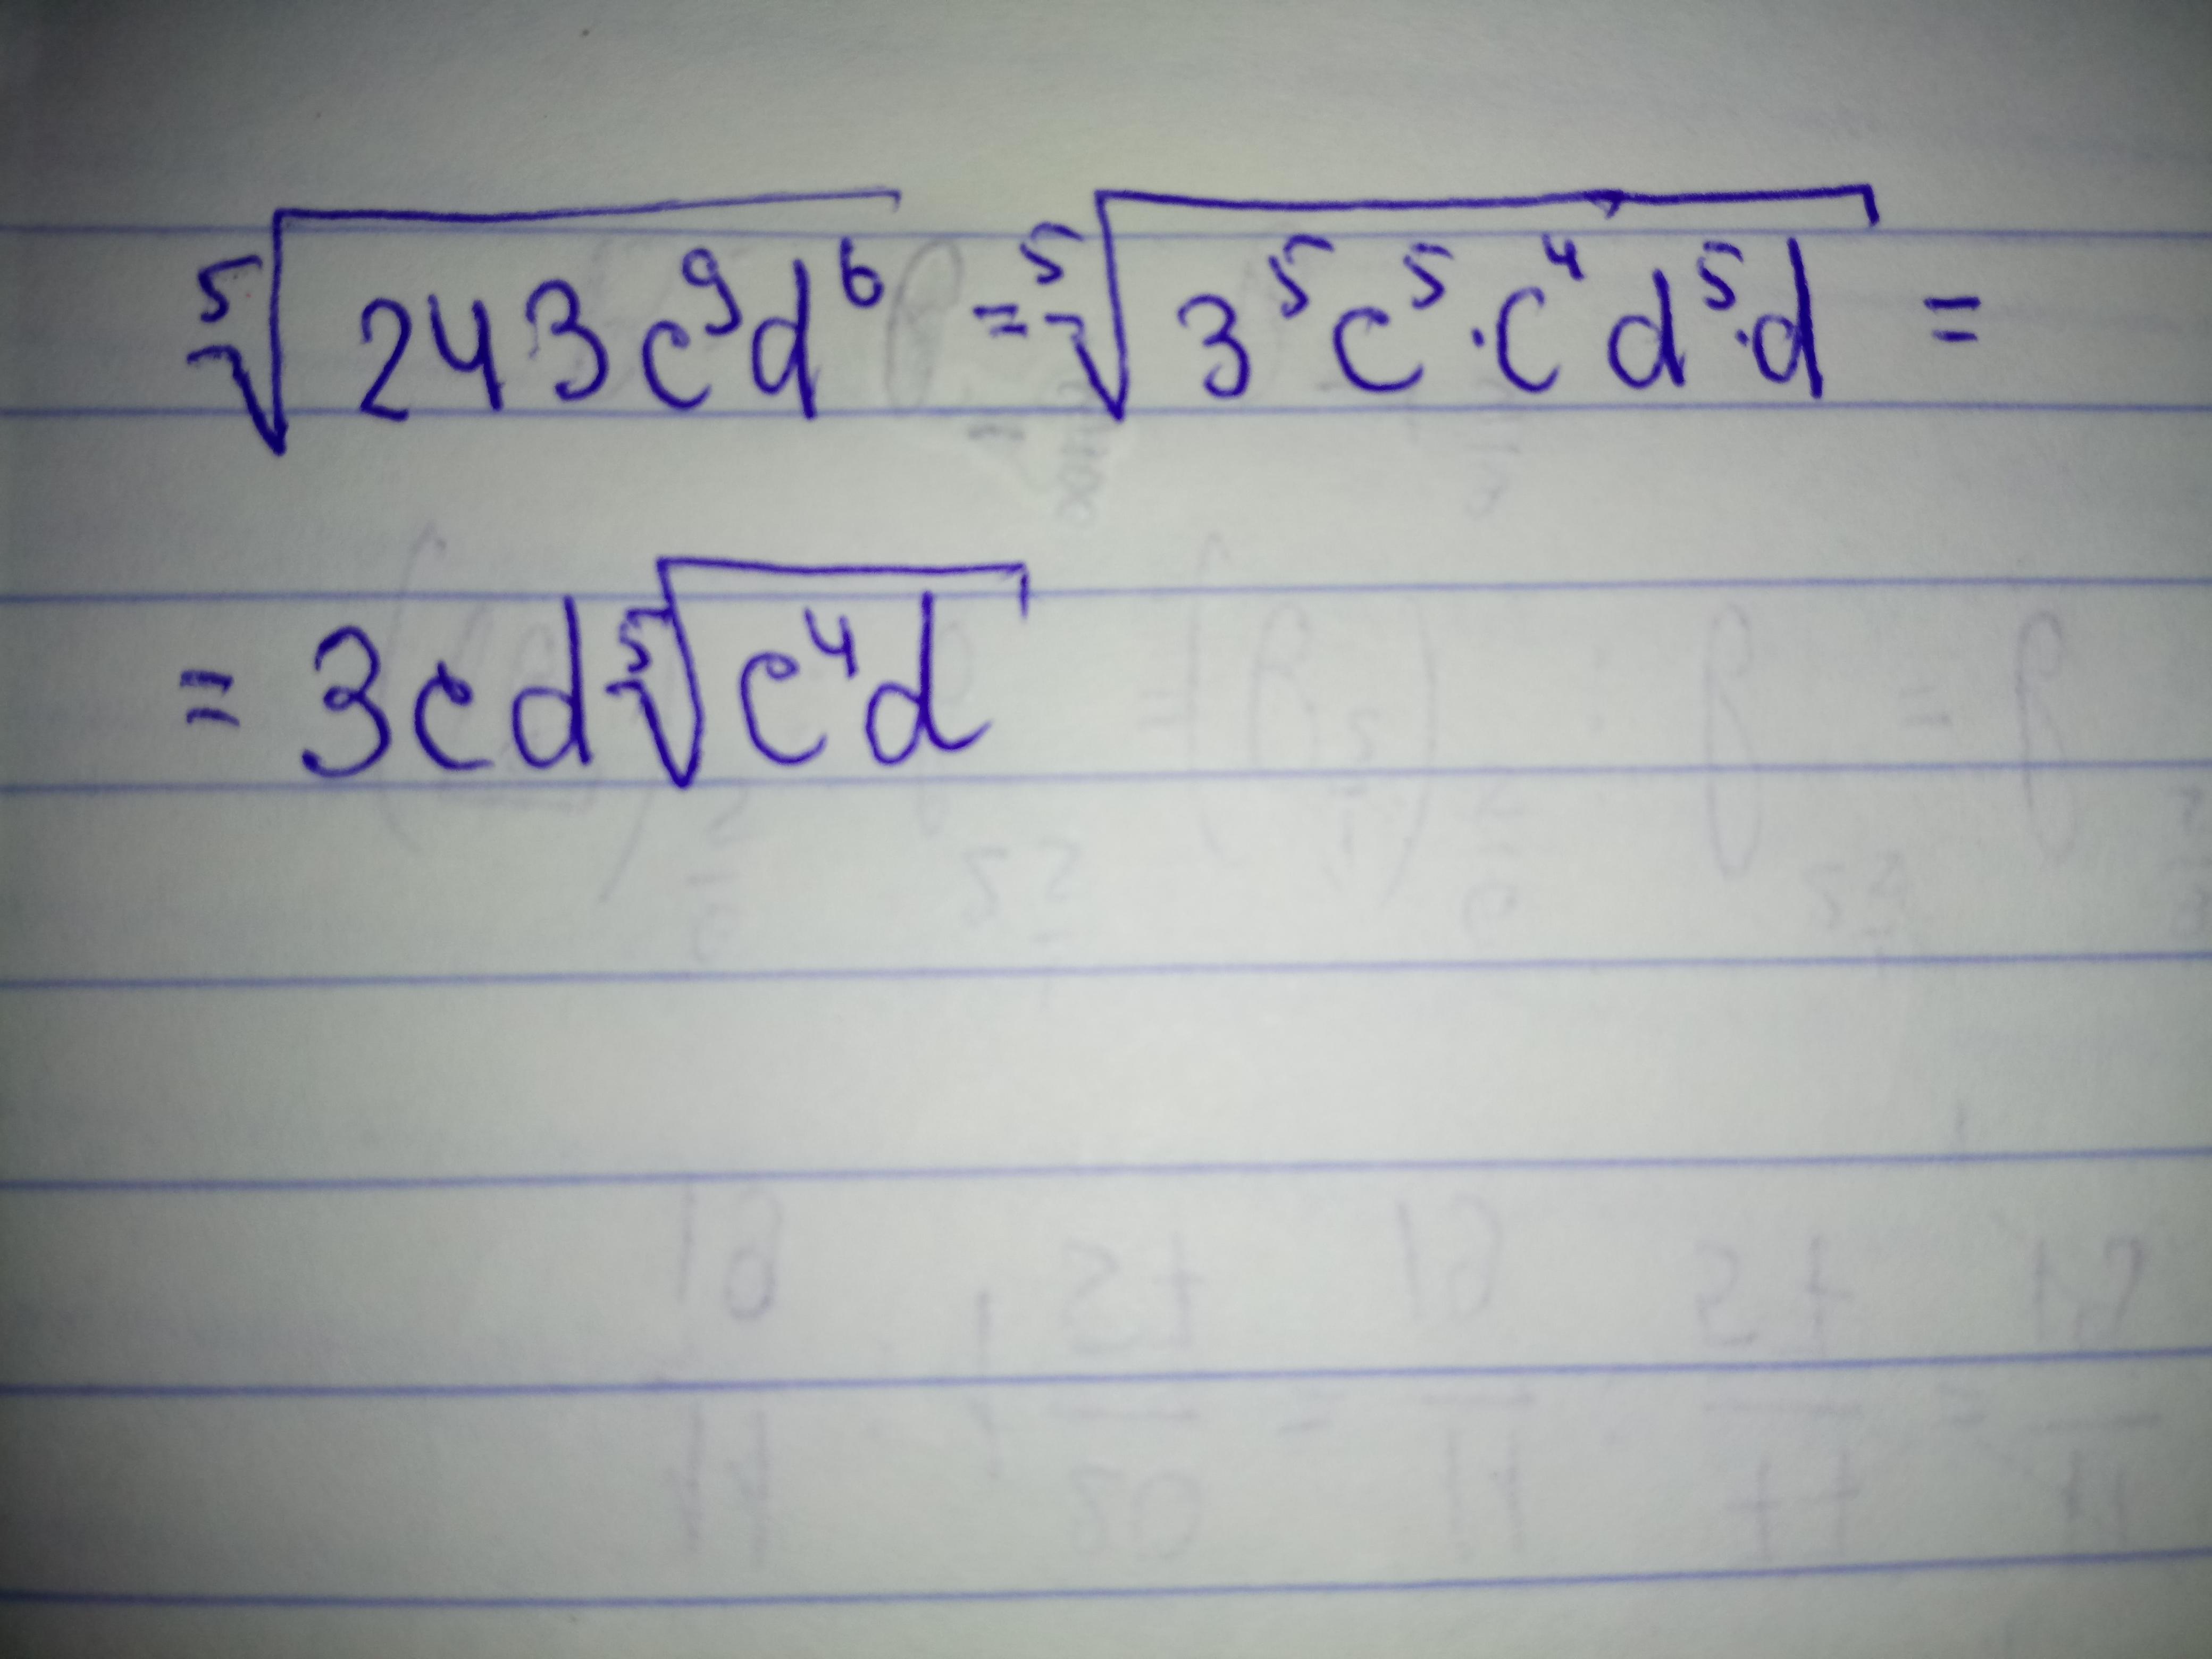 ⁵√243c⁹d⁶ = ⁵√3⁵c⁵·c⁴d⁵·d =
= 3cd ⁵√c⁴d